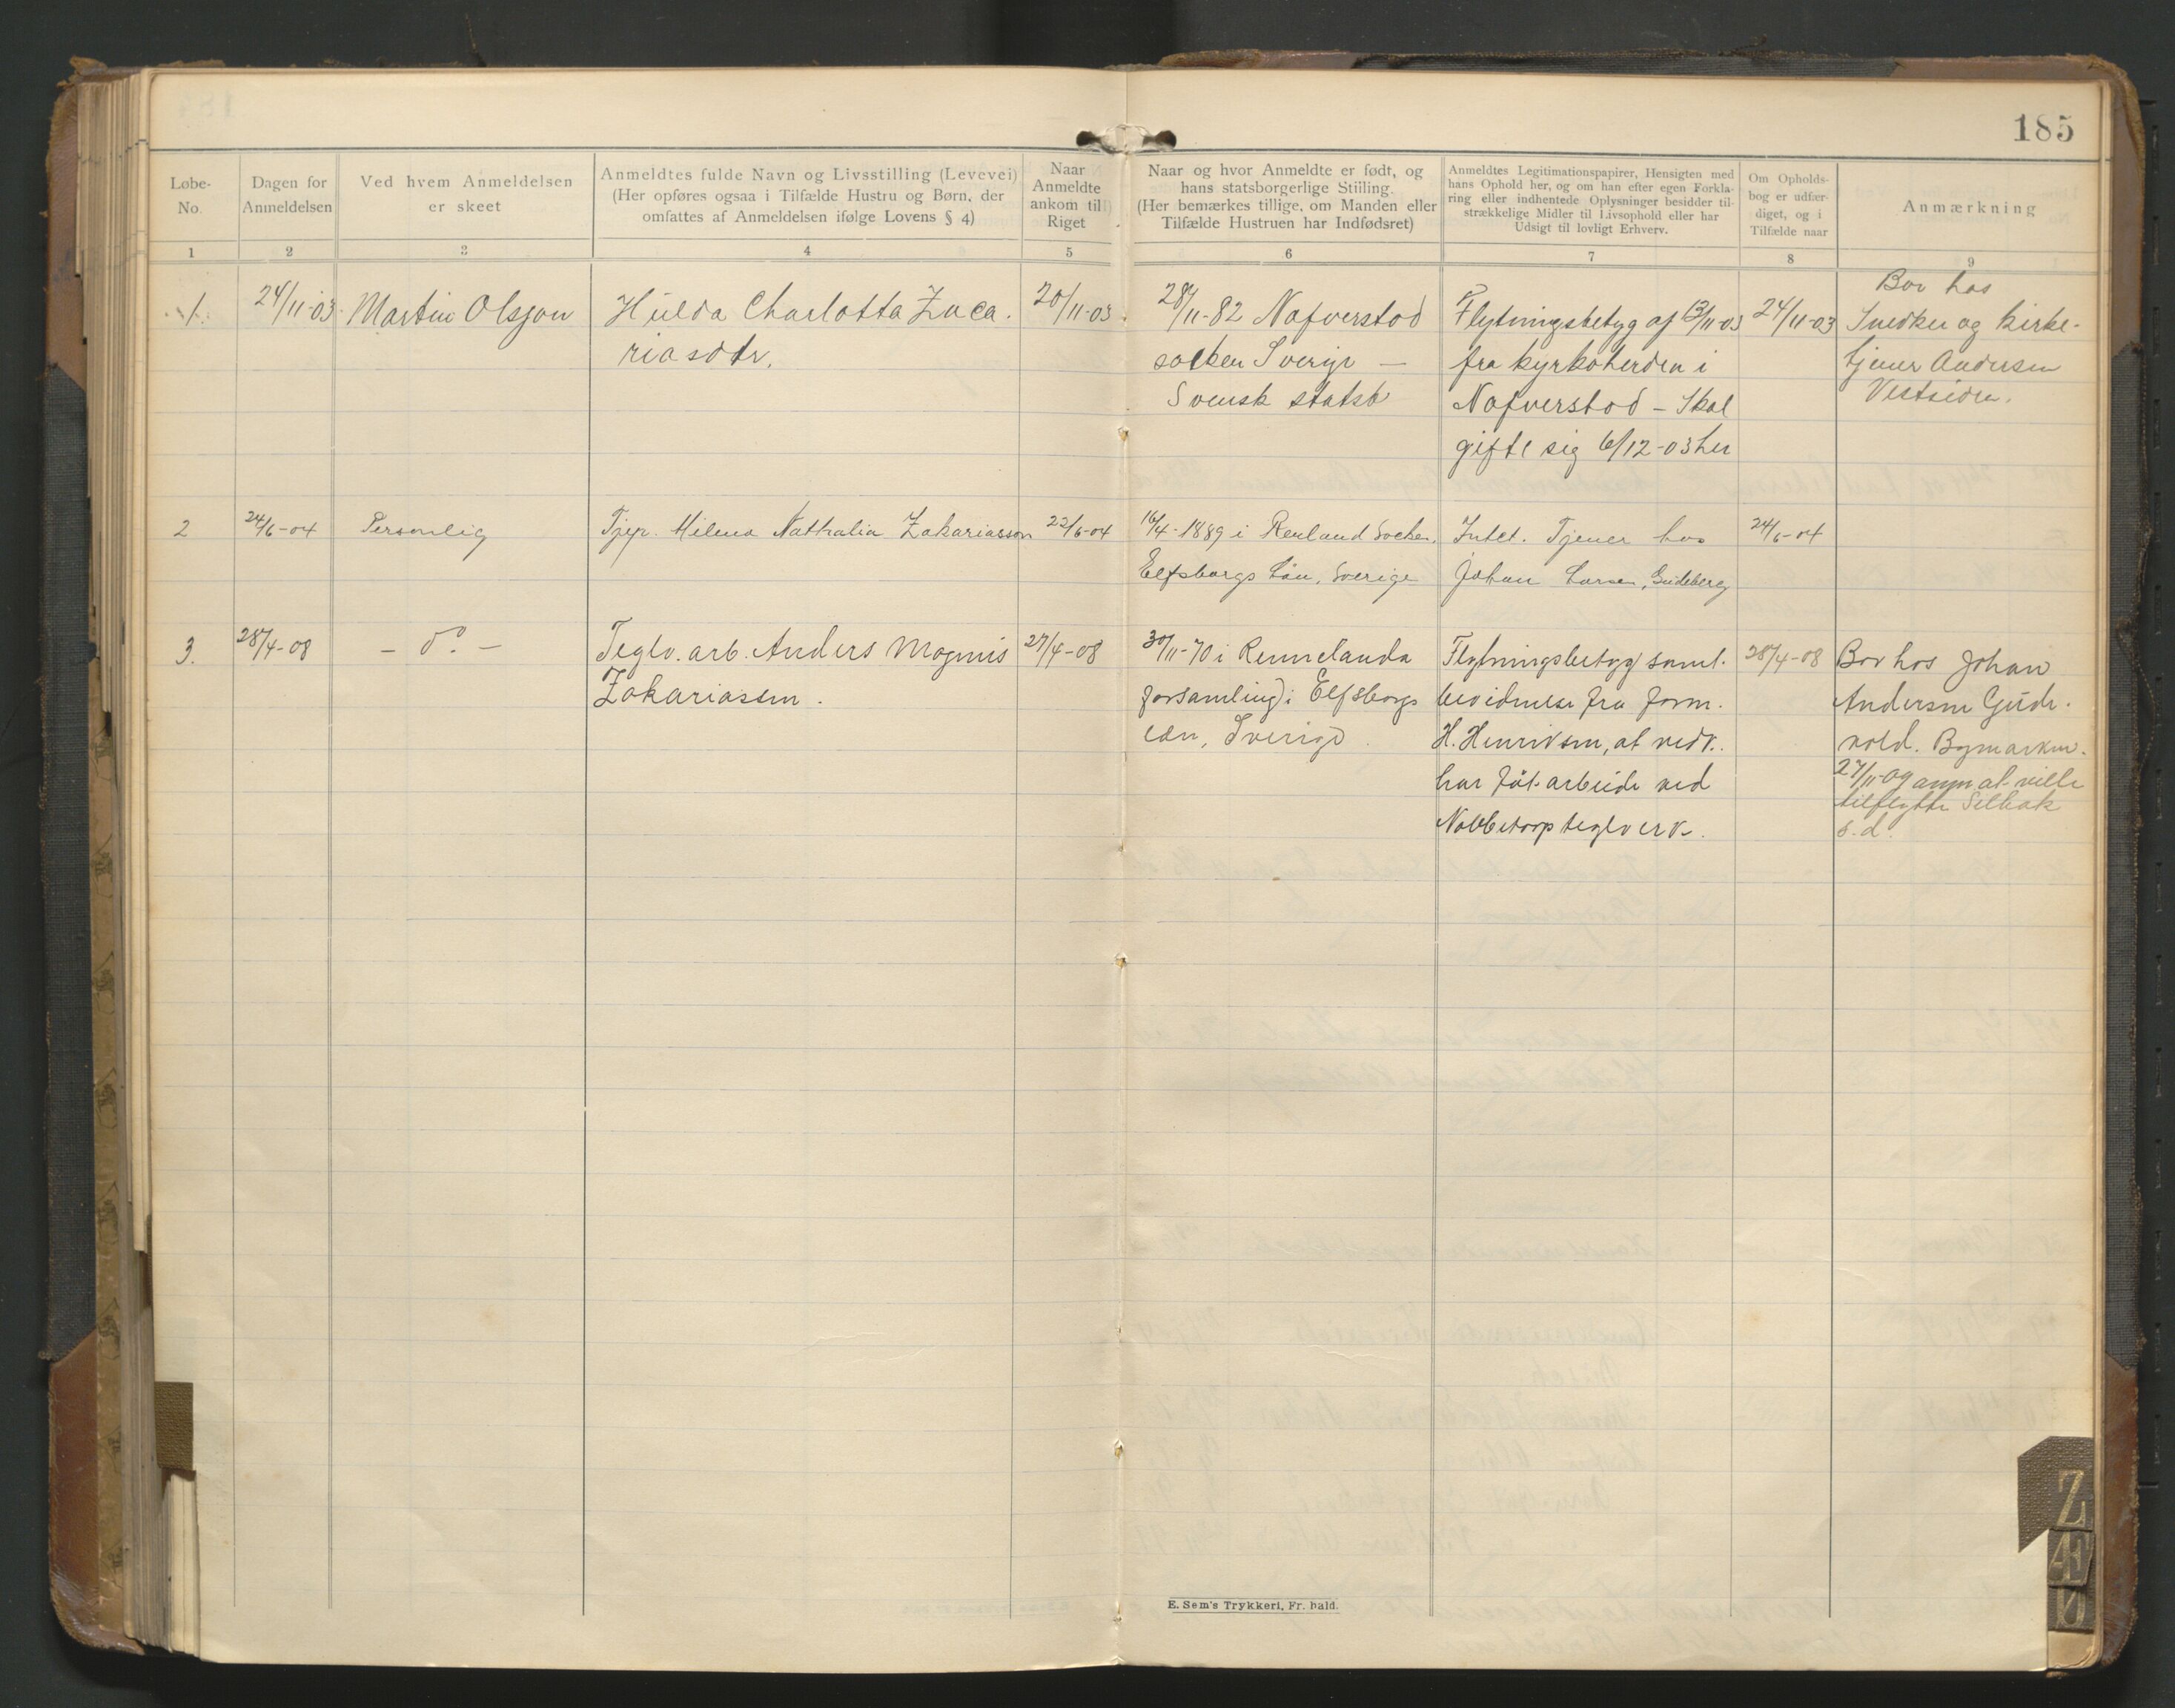 185
Løbe-
No.
Dagen for
Anmeldelsen
Ved hvem Anmeldelsen
er skeet
Anmeldtes fulde Navn og Livsstilling (Levevei)
(Her opføres ogsaa i Tilfælde Hustru og Børn, der
omfattes af Anmeldelsen ifølge Lovens § 4)
Naar
Anmeldte
ankom til
Riget
Naar og hvor Anmeldte er født, og
hans statsborgerlige Stilling.
(Her bemærkes tillige, om Manden eller
Tilfælde Hustruen har Indfødsret)
Anmeldtes Legitimationspapirer, Hensigten med
hans Ophold her, og om han efter egen Forkla-
ring eller indhentede Oplysninger besidder til-
strækkelige Midler til Livsophold eller har
Udsigt til lovligt Erhverv.
Om Opholds-
bog er udfær-
diget, og i
Tilfælde naar
Anmærkning
1 2 3 4 5 6 7 8 9
1.
24/11-03
Martin Olsson
Hulda Charlotta Zaca-
riasdtr.
20/11-03
28/11-82 Nafverstad
socken Sverige —
Svensk statsb
Flytningsbetyg af 13/11-03
fra kyrkoherden i
Nafverstad - Skal
gifte sig 6/12-03 her
24/11-03
Bor hos
Snedker og kirke-
tjener Andersen
Vestsiden.
2
24/6-04
Personlig
Tjep. Milena Nathalia Zakariasson
22/6-04
16/4-1889 i Renland Socken,
Elfsborgs Län, Sverige
Intet. Tjener hos
Johan Larsen, Gudeberg
24/6-04
3.
28/4-08
- do -
Teglv. arb. Anders Magnus
Zakariassen.
27/4-08
30/11-70 i Rennelanda
forsamling i Elfsborgs
län, Sverige
Flytningsbetyg samt
bevidnelse fra form.
H. Henriksen, at vedk.
har fåt arbeide ved
Nabbetorp teglverk.
28/4-08
Bor hos Johan
Andersen Gude-
vold. Bymarken.
27/11-09 anm at ville
tilflytte Selbak
s.d.
E. Sem's Trykkeri, Fr. hald.
Z
Æ
Ø